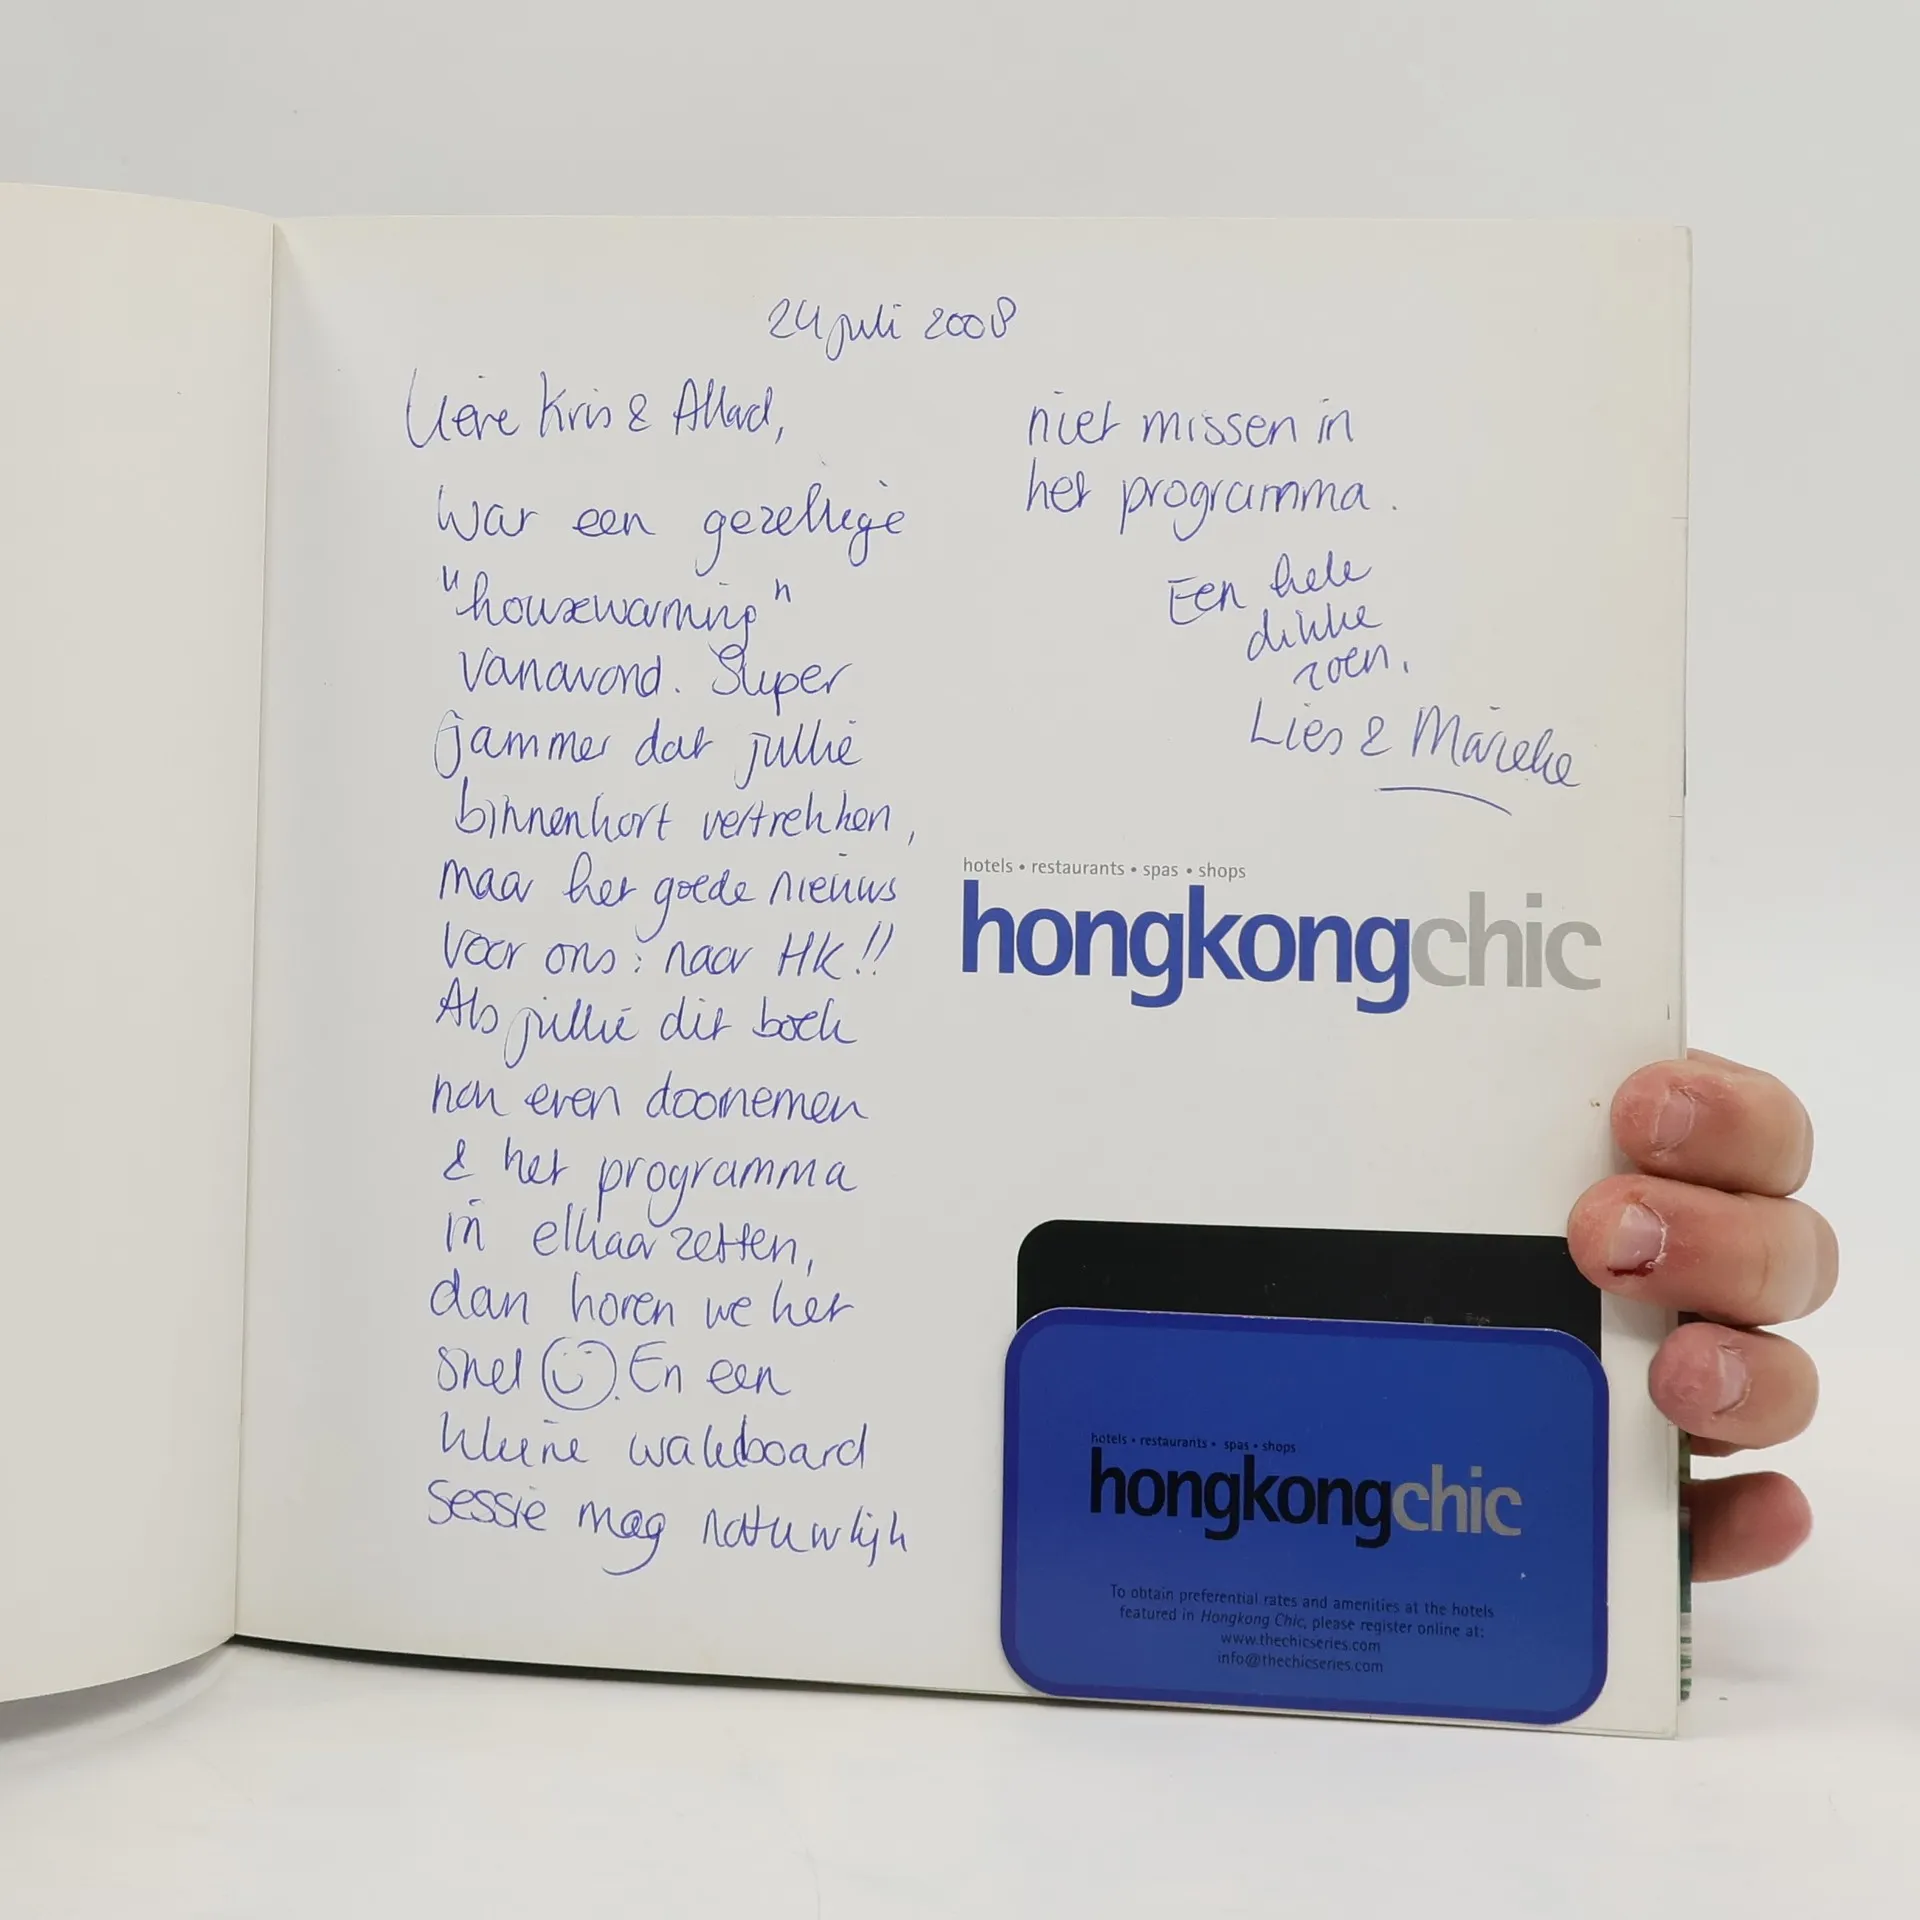 24 juli 2008
Lieve Kris & Allard,
War een gezellige
"housewarming"
vanavond. Super
jammer dat jullie
binnenkort vertrekken,
maar het goede nieuws
voor ons: naar HK!!
Als jullie dit boek
nou even doornemen
& het programma
in elkaar zetten,
dan horen we het
snel ☺. En een
kleine wakeboard
sessie mag natuurlijk
niet missen in
het programma.
Een hele
dikke
zoen.
Lies & Marieke
hotels • restaurants • spas • shops
hongkongchic
hotels • restaurants • spas • shops
hongkongchic
To obtain preferential rates and amenities at the hotels
featured in Hongkong Chic, please register online at:
www.thechicseries.com
info@thechicseries.com